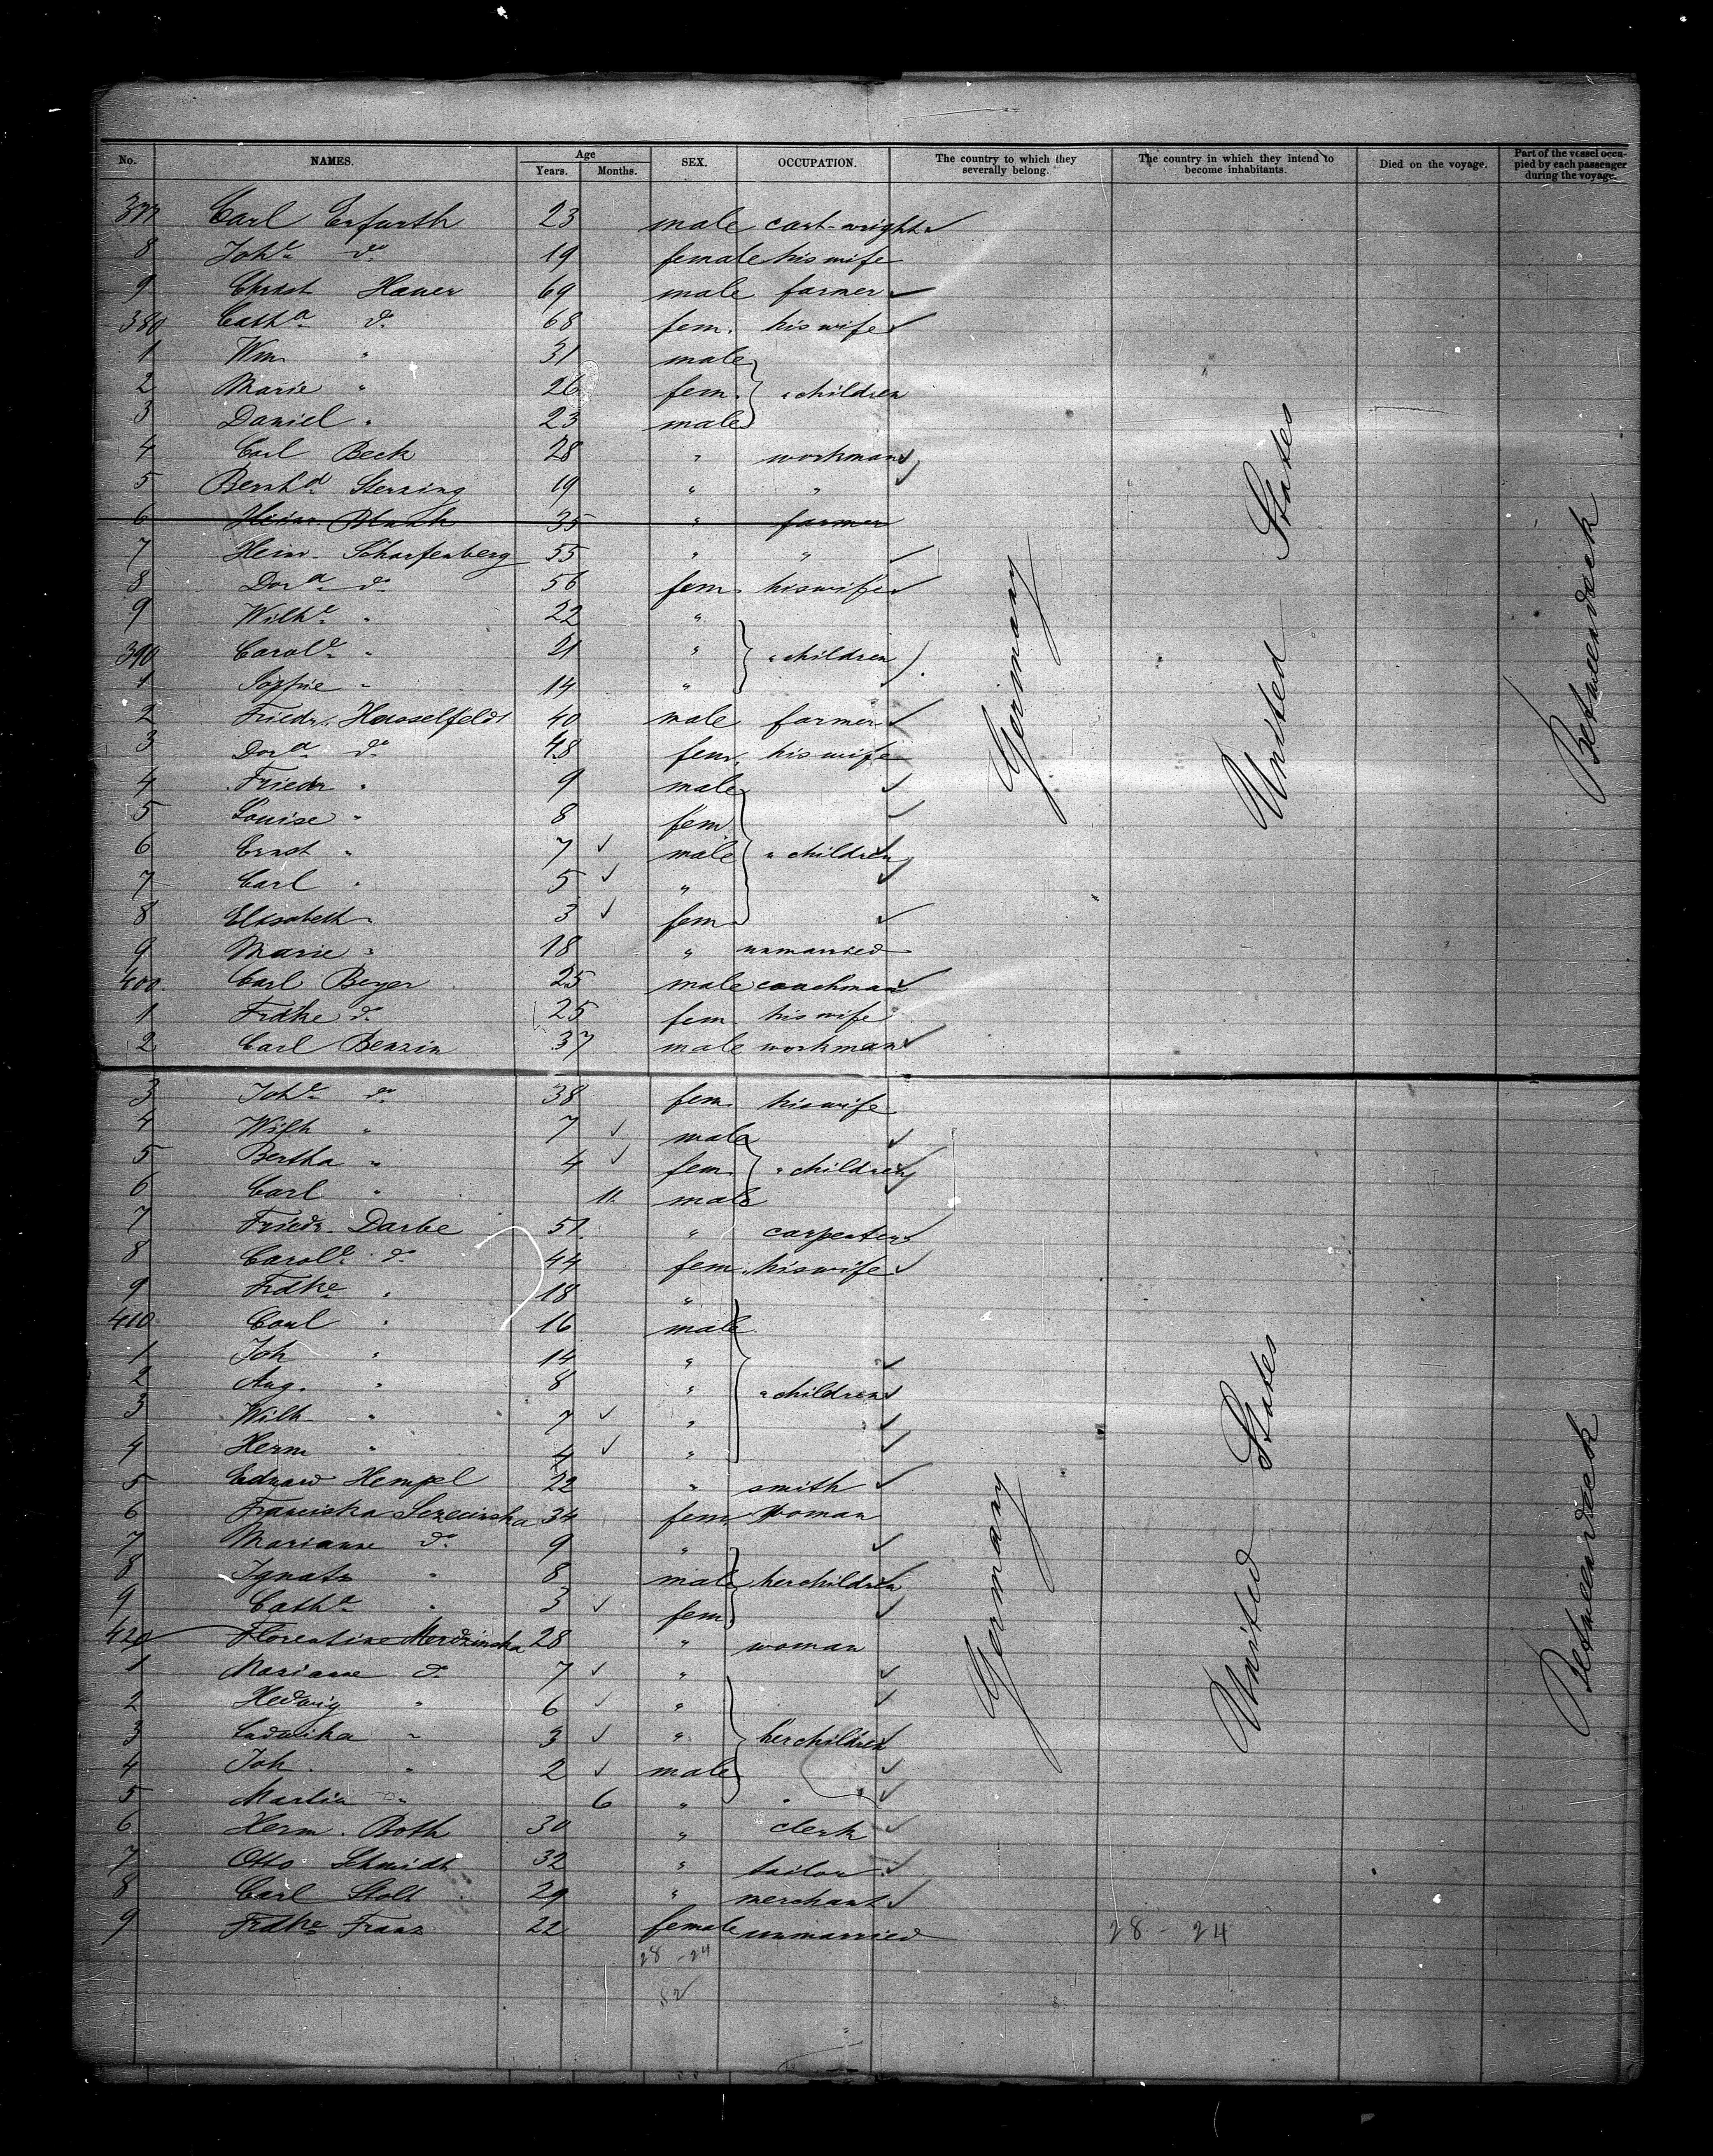 No. NAMES. Age Years. Months. SEX. OCCUPATION. The country to which they severally belong. The country in which they intend to become inhabitants. Died on the voyage. Part of the vessel occupied by each passenger during the voyage.
377 Carl Erfurth 23 male cart-wright
8 Johe do 19 female his wife
9 Christ Hauer 69 male farmer
380 Catha do 68 fem. his wife
1 Wm. " 31 male
2 Marie " 26 fem. " children
3 Daniel " 23 male
4 Carl Beck 28 " workman
5 Bernhd Sterzing 19 " "
6 35 " farmer
7 Heinr. Scharfenberg 55 " "
8 Dora do 56 fem. his wife
9 Wilhe " 22 "
390 Carole " 21 " " children
1 Sophie " 14 "
2 Friedr. Hasselfeldt 40 male farmer
3 Dora do 48 fem. his wife
4 Friedr " 9 male
5 Louise " 8 fem
6 Ernst " 7 male " children
7 Carl " 5 "
8 Elisabeth " 3 fem
9 Marie " 18 " unmarried
400 Carl Beyer 25 male coachman
1 Frdke do 25 fem. his wife
2 Carl Benzin 37 male workman
Germany United States Betweendeck
3 Johe do 38 fem. his wife
4 Wilh " 7 male
5 Bertha " 4 fem. " children
6 Carl " 11 male
7 Friedr. Darbe 51 " carpenter
8 Carole do 44 fem. his wife
9 Frdke " 18 "
410 Carl " 16 male
1 Joh " 14 "
2 Aug. " 8 " " children
3 Wilh " 7 "
4 Herm " 4 "
5 Eduard Hempel 22 " smith
6 Franciska 34 fem. Woman
7 Marianne do 9 "
8 Ignatz " 8 male her children
9 Catha " 3 fem.
420 Florentine 28 " woman
1 Marianne do 7 "
2 Hedwig " 6 "
3 Ludwika " 3 " her children
4 Joh. " 2 male
5 Martin " 6 " "
6 Herm. Roth 30 " clerk
7 Otto Schmidt 32 " tailor
8 Carl Stolt 29 " merchant
9 Frdke Franz 22 female unmarried
Germany United States Betweendeck
28 - 24 28 - 24
52